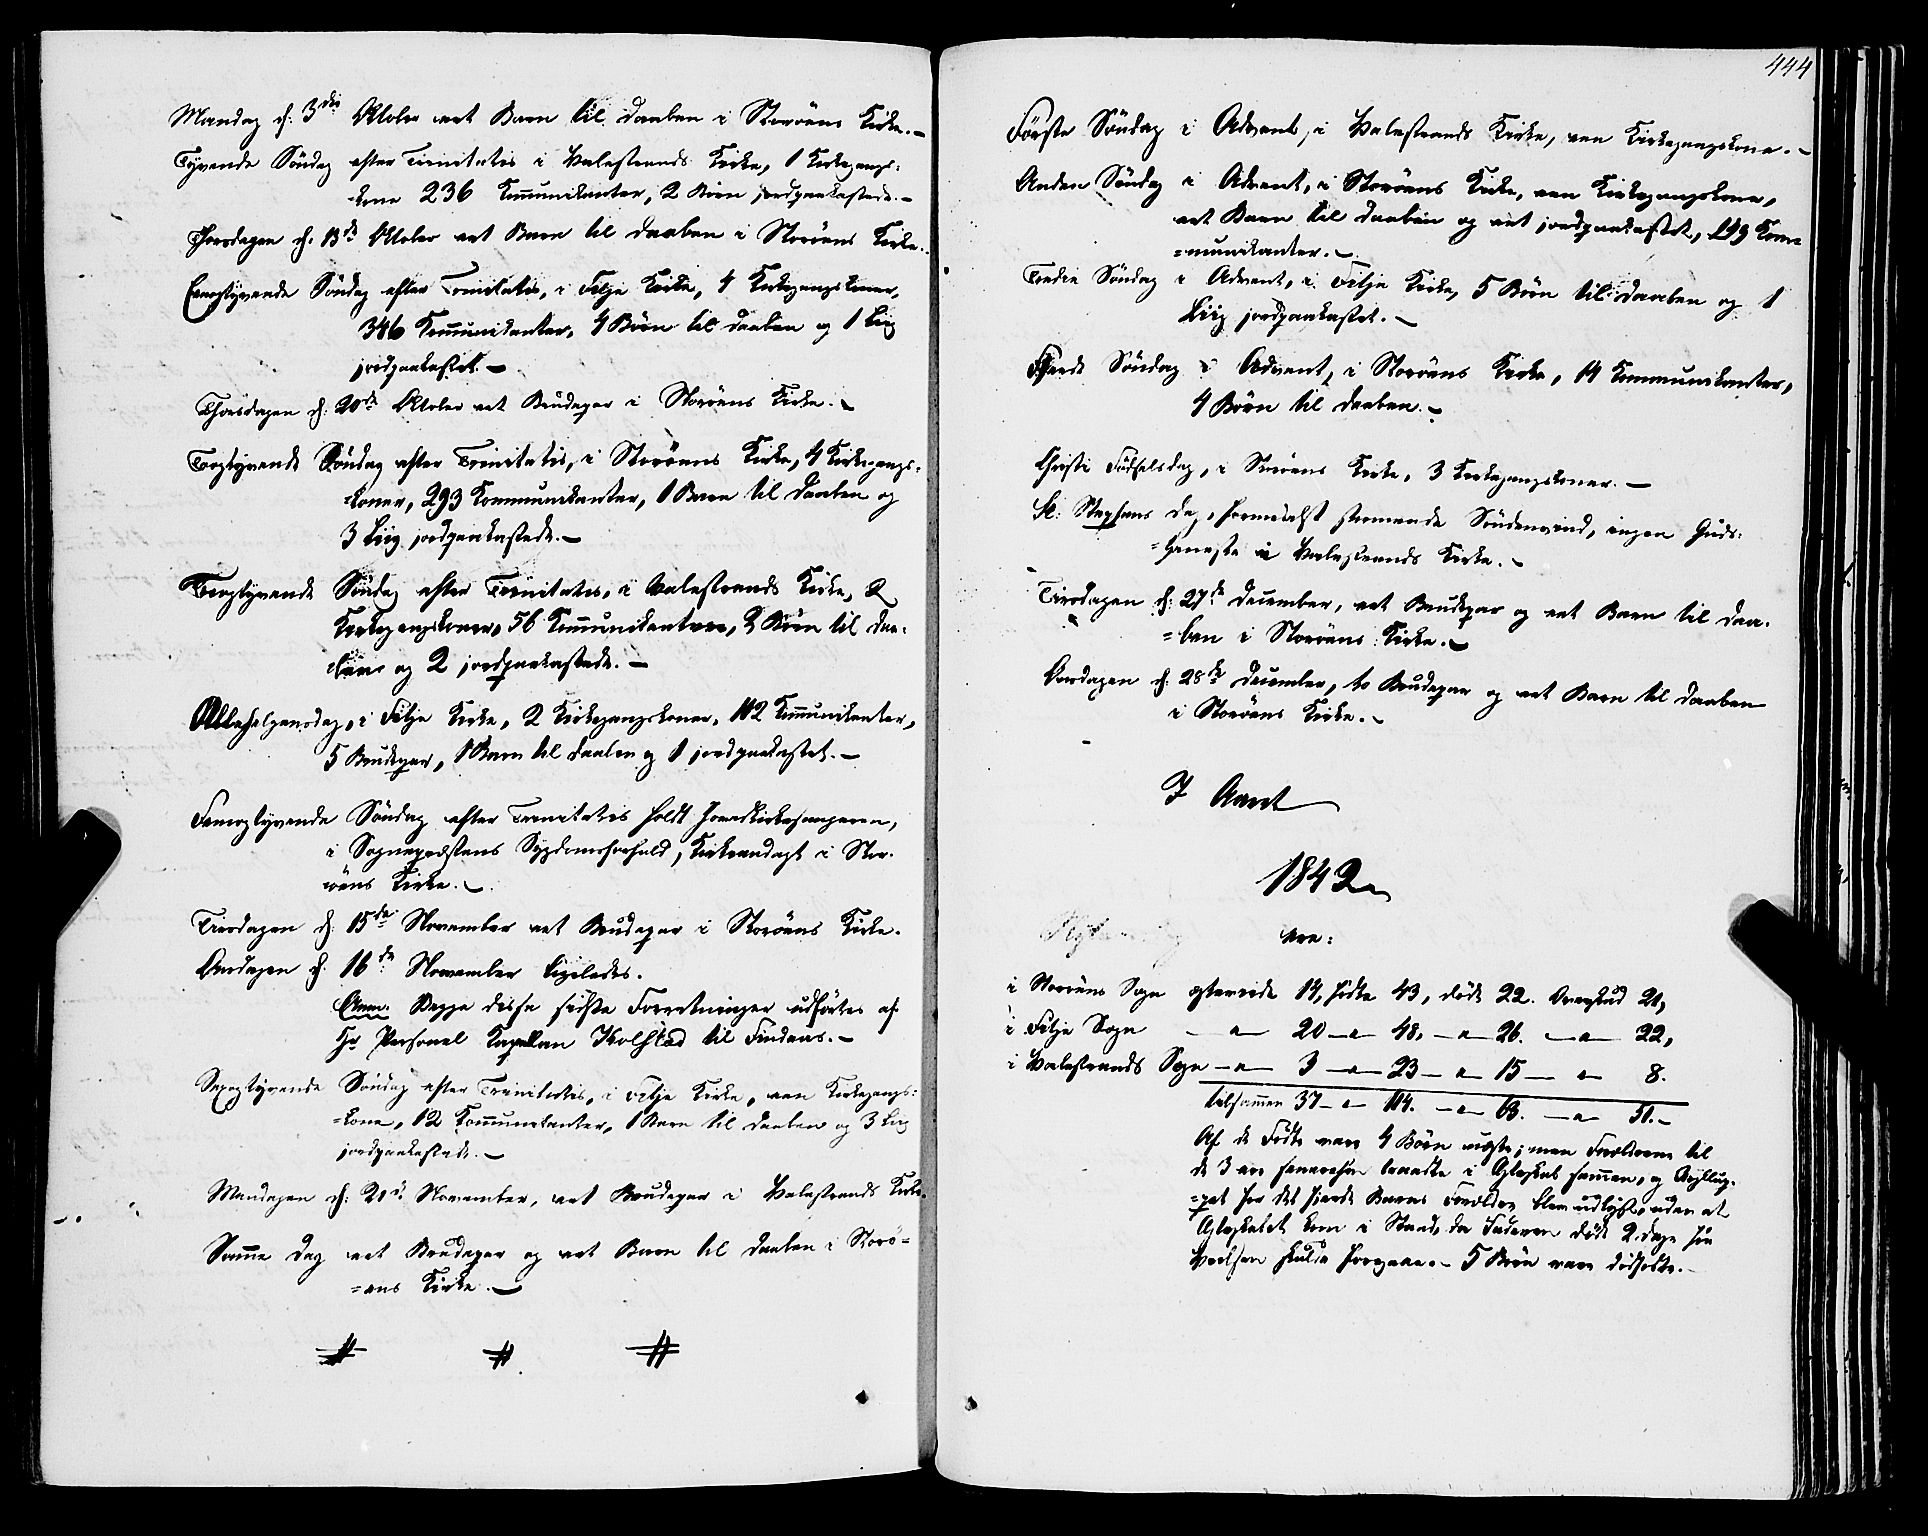 Mandag d: 3die October eet Barn til Daaben i Storöens Kirke.-
Tyvende Söndag efter Trinitatis i Valestrands Kirke, 1 Kirkegangs:
kone 236 Kommunikanter, 2 Börn jordpaakastede.-
Thorsdagen d. 13de Oktober eet Barn til Daaben i Storöens Kirke.
Eenogtyvende Söndag efter Trinitatis, i Fitje Kirke, 4 Kirkegangskoner,
346 Kommunikanter, 4 Börn til Daaben og 1 Liig
jordpaakastet.-
Thorsdagen d. 20de Oktober eet Brudepar i Storöens Kirke.-
Toogtyvende Söndag efter Trinitatis, i Storöens Kirke, 4 Kirkegangs:
=koner, 293 Kommunikanter, 1 Barn til Daaben og
3 Liig jordpaakastede.-
Treogtyvende Söndag efter Trinitatis, i Valestrands Kirke, 2
Kirkegangskoner, 56 Kommunikantere, 2 Börn til Daa:
ben og 2 jordpaakastede.-
Allehelgensdag, i Fitje Kirke, 2 Kirkegangskoner, 112 Kommunikanter,
5 Brudepar, 1 Barn til Daaben og 1 jordpaakastet.-
Femogtyvende Söndag efter Trinitatis holdt Hovedkirkesangeren,
i Sognepræstens Sygdomsforfald, Kirkeandagt i Stor-
öens Kirke.-
Tirsdagen d: 15de November eet Brudepar i Storöens Kirke.
Onsdagen d: 16de November ligeledes.
Anm. Begge disse sidste Forretninger udförtes af
Hr Personel Kapellan Kolstad til Findaas.-
Sexogtyvende Söndag efter Trinitatis, i Fitje Kirke, een Kirkegangs:
=kone, 12 Kommunikanter, 1 Barn til Daaben og 3 Liig
jordpaakastede.-
Mandagen d: 21de November, eet Brudepar i Valestrands Kirke.
Samme Dag eet Brudepar og eet Barn til Daaben i Storö=
=ens Kirke.-
444
Förste Söndag i Advent, i Valestrands Kirke, een Kirkegangskone.-
Anden Söndag i Advent, i Storöens Kirke, een Kirkegangskone,
eet Barn til Daaben og eet jordpaakastet, Kom=
=munikanter.-
Tredie Söndag i Advent, i Fitje Kirke, 5 Börn til Daaben og 1
Liig jordpaakastet.-
Fjerde Söndag i Advent, i Storöens Kirke, 14 Kommunikanter,
4 Börn til Daaben.-
Christi Födselsdag, i Storöens Kirke, 3 Kirkegangskoner.-
St: Stephans Dag, formedelst stormende Söndenvind, ingen Guds:
=tjeneste i Valestrands Kirke.-
Tirsdagen d: 27de December, eet Brudepar og eet Barn til Daa:
=ben i Storöens Kirke.-
Onsdagen d: 28de December, to Brudepar og eet Barn til Daaben
i Storöens Kirke.-
I Aaret
1842
ere:
i Storöens Sogn egteviede 14, födte 43, döde 22. Overskud 21,
i Fitje Sogn -"- 20 -"- 48, -"- 26. -"- 22,
i Valestrands Sogn -"- 3 -"- 23 -"- 15 -"- 8.
tilsammen 37 -"- 114. -"- 63. -"- 51.-
Af de Födte vare 4 Börn uægte; men Forældrene til
de 3 ere senerehen traadte i Egteskab sammen, og
for det fjerde Barns Forældre blev udlyst, uden at
Egteskabet kom i Stand, da Faderen döde 2 Dage för
Vielsen skulde foregaae.- 5 Börn vare dödfödte.-